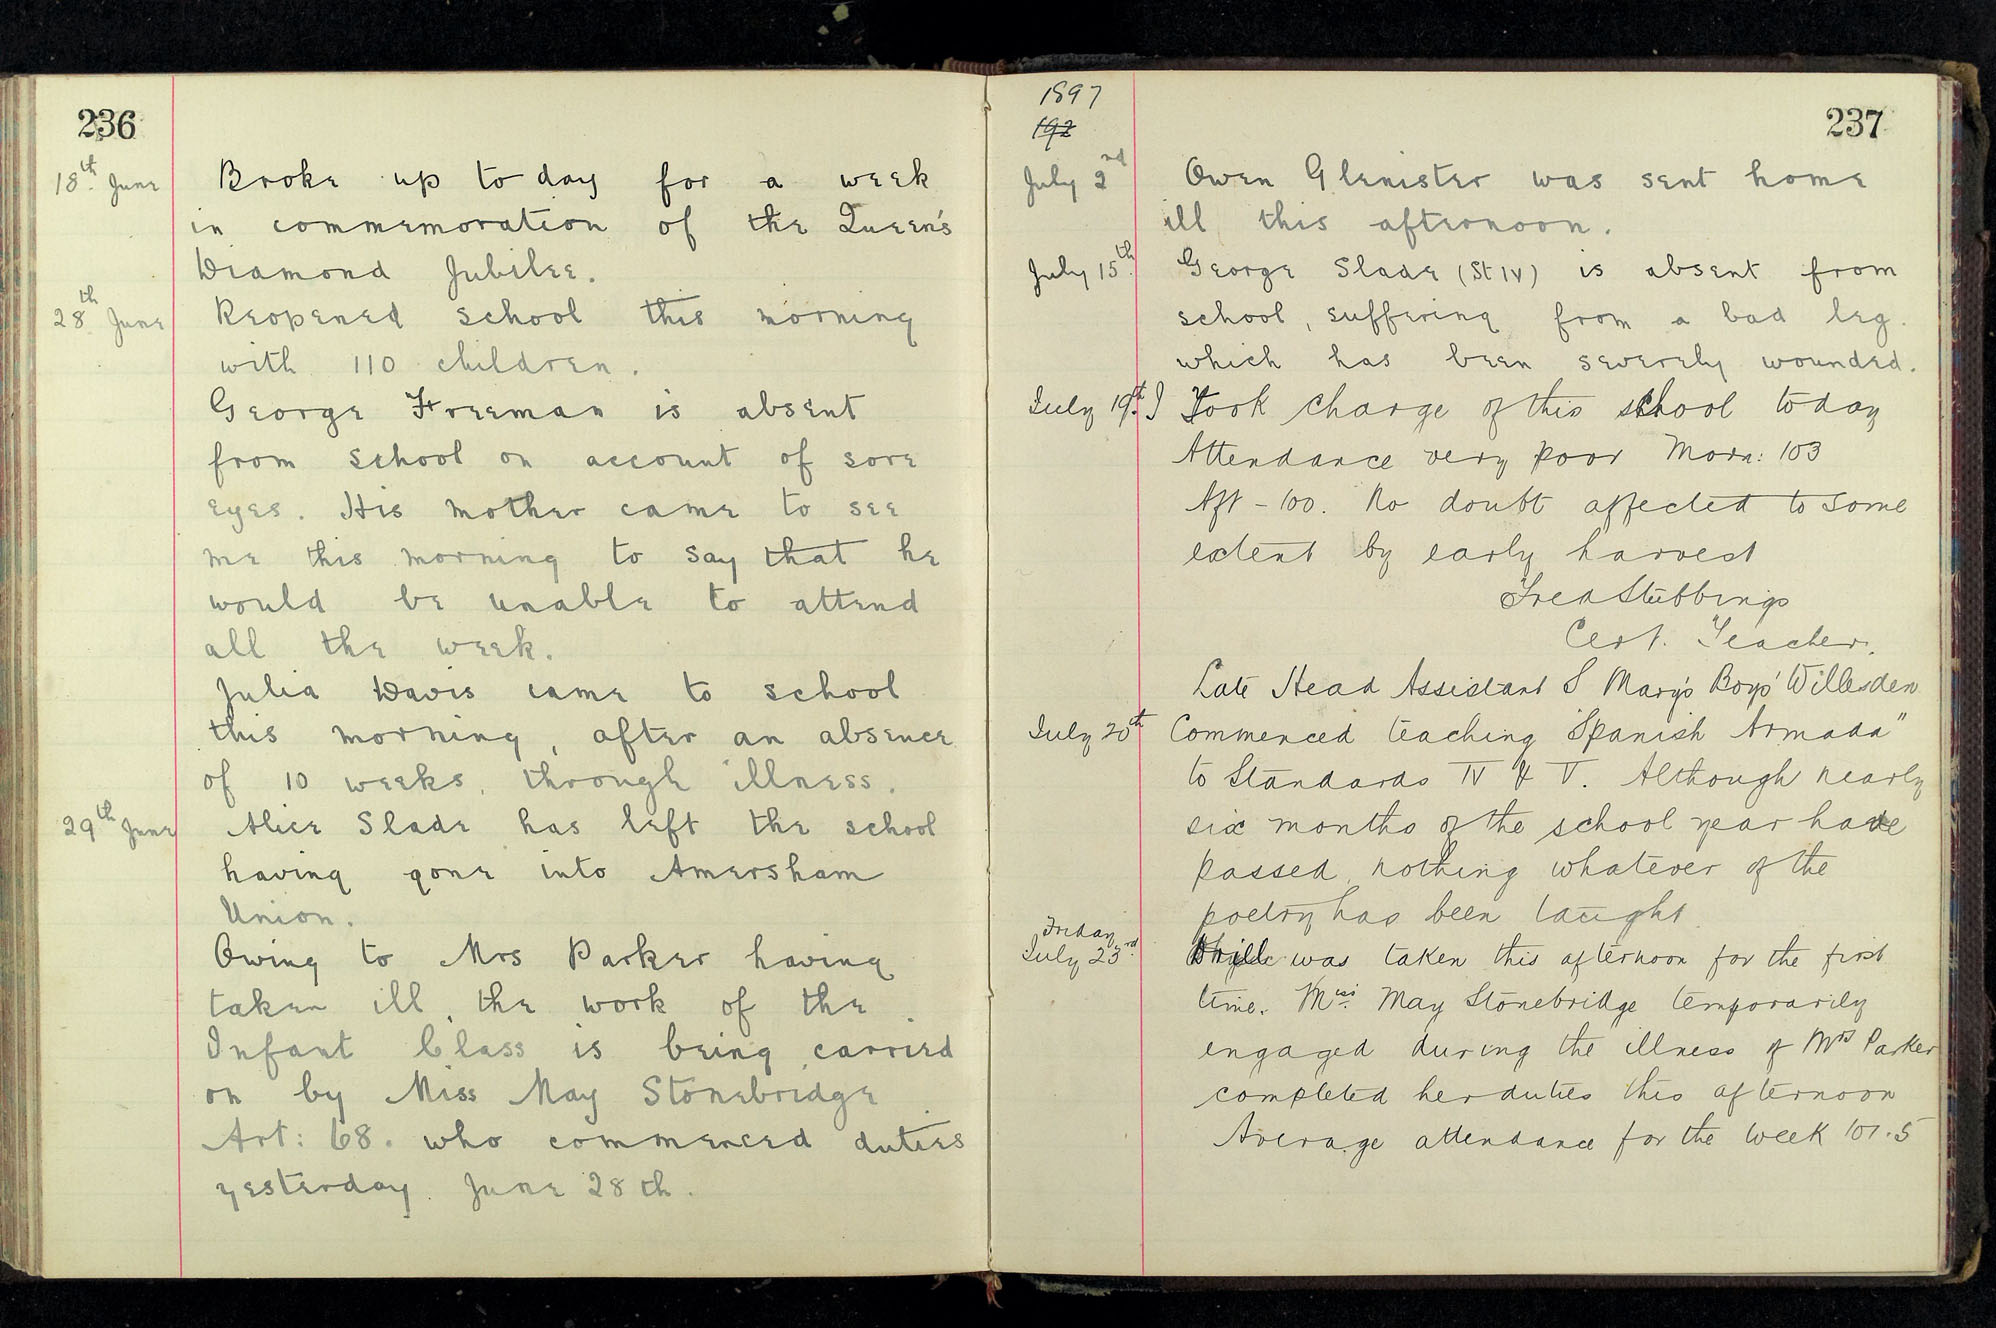 236
18th June Broke up to day for a week
in commemoration of the Queen's
Diamond Jubilee.
28th June Reopened school this morning
with 110 children.
George Freeman is absent
from school on account of sore
eyes. His mother came to see
me this morning to say that he
would be unable to attend
all the week.
Julia Davis came to school
this morning, after an absence
of 10 weeks, through illness.
29th June Alice Slade has left the school
having gone into Amersham
Union.
Owing to Mrs Parker having
taken ill, the work of the
Infant Class is being carried
on by Miss May Stonebridge
Art: 68. who commenced duties
yesterday. June 28th.
1897
192
237
July 2nd Owen Glenister was sent home
ill this afternoon.
July 15th George Slade (St IV) is absent from
school, suffering from a bad leg.
which has been severely wounded.
July 19th I Took charge of this school today
Attendance very poor Morn: 103
Aft - 100. No doubt affected to some
extent by early harvest
Fred Stubbings
Cert. Teacher.
Late Head Assistant S Mary's Boys' Willesden
July 20th Commenced teaching "Spanish Armada"
to Standards IV & V. Although nearly
six months of the school year have
passed, nothing whatever of the
poetry has been taught.
Friday
July 23rd Drill was taken this afternoon for the first
time. Miss May Stonebridge temporarily
engaged during the illness of Mrs Parker
completed her duties this afternoon
Average attendance for the week 101.5